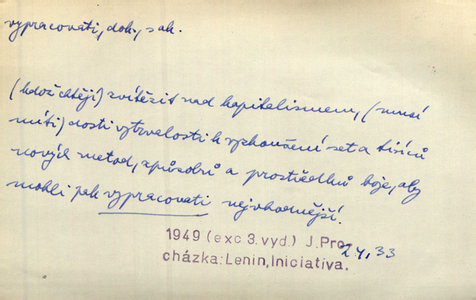 vypracovati, dok., sak.
(kdož chtějí) zvítězit nad kapitalismem, (musí
míti) dosti vytrvalosti k vyzkoušení set a tisíců
nových metod, způsobů a prostředků boje, aby
mohli pak vypracovati nejvhodnější.
1949 (exc 3.vyd.) J.Pro-
cházka: Lenin, Iniciativa.
24,33